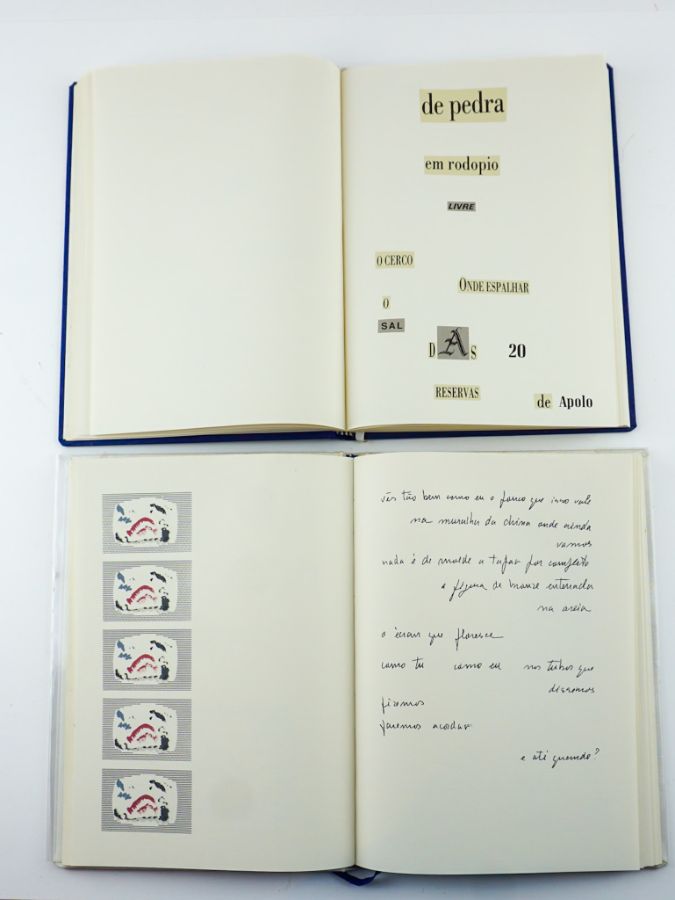 de pedra
em rodopio
LIVRE
O CERCO
ONDE ESPALHAR
O
SAL
DAS 20
RESERVAS
de Apolo
vês tão bem como eu o pouco que isso vale
na muralha da china onde ainda
vamos
nada é de molde a tapar por completo
a figura de bronze enterrada
na areia
o écran que floresce
como tu como eu nos tubos que
dissemos
fizemos
faremos acordar
e até quando?